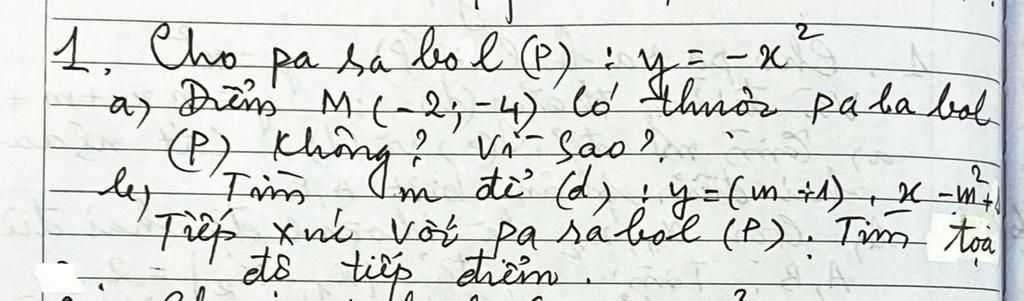 1, Cho pa ra bol (P) : y = -x²
a) Điểm M (-2; -4) có thuộc pa ra bol
(P) không? Vì sao?
b) Tìm m để (d) : y = (m+1).x - m²+
Tiếp xúc với pa ra bol (P). Tìm tọa
độ tiếp điểm.